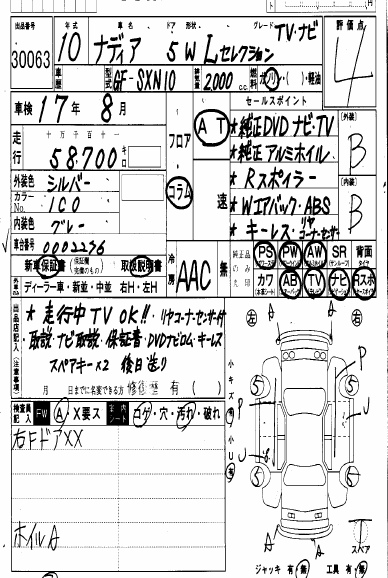 出品番号 年式 車名 ドア 形状 グレード 評価点
30063 10 ナディア 5W Lセレクション TV・ナビ 4
車歴 型式 GF-SXN10 排気量 2,000 cc 燃料 ガソリン・( )・軽油
車検 17年 8月 フロア AT セールスポイント
走行 十万千百十一 58,700 キロ コラム 速
★純正DVDナビ・TV 外装 B
★純正アルミホイル
★Rスポイラー
★Wエアバック・ABS 内装 B
★キーレス・リヤコーナーセンサー
外装色 シルバー
カラーNo. 1C0
内装色 グレー
車台番号 0002236
冷房 AAC 無
純正品のみ○印 PS PW AW SR 背面
カワ AB TV ナビ Rスポ
新車保証書 (保証欄完備のもの) 取扱説明書
ディーラー車・新並・中並 右H・左H
出品店記入(注意事項)
★走行中TV OK!! リヤコーナーセンサー付
取説・ナビ取説・保証書・DVDナビロム・キーレス
スペアキー×2 後日送り
月 日までに名変できる方 修復歴 有( )
検査員記入 FW A・X要ス 車内シート コゲ・穴・汚れ・破れ
右FドアXX
ホイルA
左 右
小キズ有 小U有
P P U U
5 5 5 5
A A A A
スペア
ジャッキ 有・無 工具 有・無